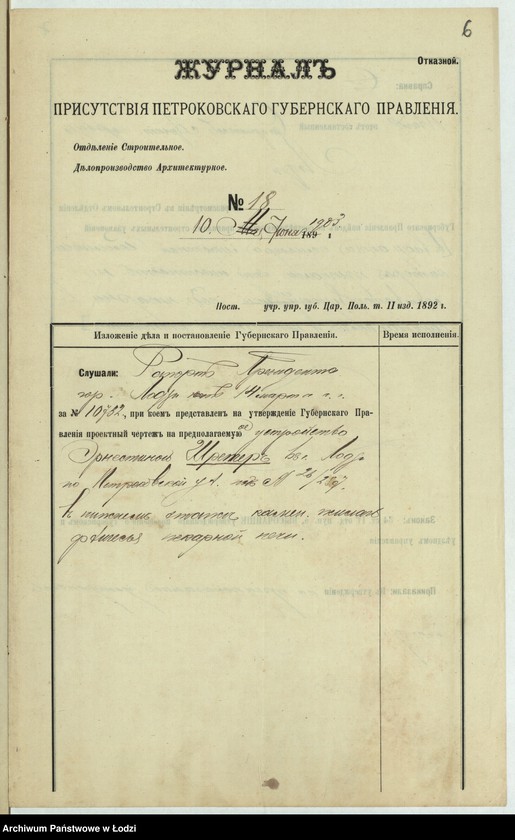 6
Отказной.
ЖУРНАЛЪ
ПРИСУТСТВІЯ ПЕТРОКОВСКАГО ГУБЕРНСКАГО ПРАВЛЕНІЯ.
Отдѣленіе Строительное.
Дѣлопроизводство Архитектурное.
№ 18
10 Іюня 1903
189 г
Пост. учр. упр. губ. Цар. Поль. т. II изд. 1892 г.
Изложеніе дѣла и постановленіе Губернскаго Правленія. Время исполненія.
Слушали: Рапортъ Президента
гор. Лодзи 14 марта с. г.
за № 10782, при коемъ представленъ на утвержденіе Губернскаго Пра-
вленія проектный чертежъ на предполагаемую ое устройство
Эрнестиной Шретеръ въ г. Лодзи
по Петроковской ул. подъ № 26/287.
въ нижнемъ этажѣ камен. жилаго
пекарной печи.
Archiwum Państwowe w Łodzi